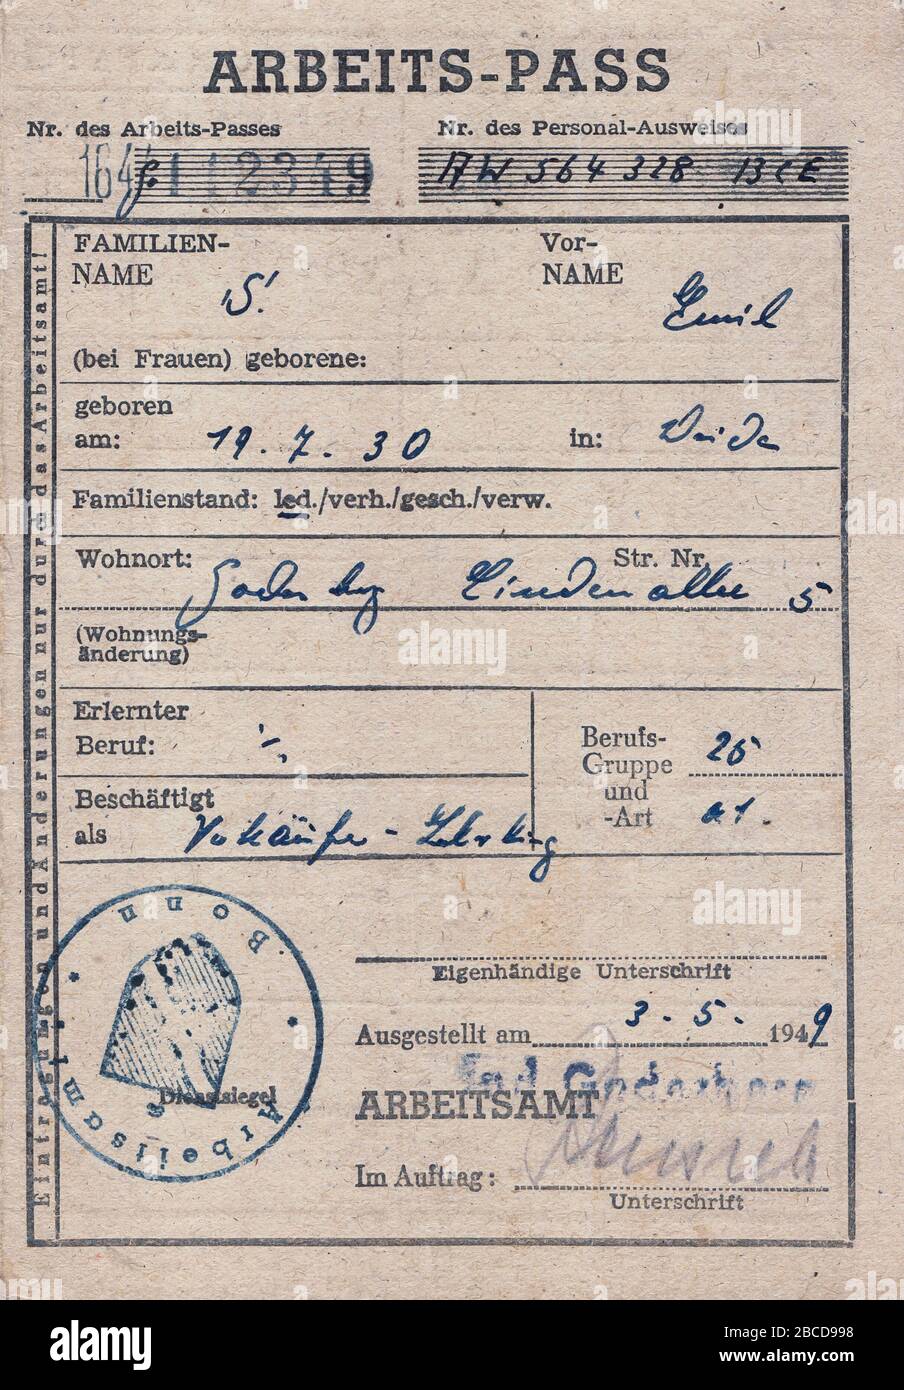 ARBEITS-PASS
Nr. des Arbeits-Passes Nr. des Personal-Ausweises
164 112349 AW 564 328 BCE
FAMILIEN- Vor-
NAME NAME
S. Emil
(bei Frauen) geborene:
geboren
am: 19.7.30 in:
Familienstand: led./verh./gesch./verw.
Wohnort: Str. Nr.
Godesbg Lindenallee 5
(Wohnungs-
änderung)
Erlernter
Beruf: -
Berufs-
Gruppe 25
und
-Art a1.
Beschäftigt
als Verkäufer-Lehrling
Eigenhändige Unterschrift
Ausgestellt am 3.5. 1949
Bad Godesberg
ARBEITSAMT
Im Auftrag:
Unterschrift
Dienstsiegel
Arbeitsamt * Bonn *
Eintragungen und Änderungen nur durch das Arbeitsamt!
alamy
alamy
Image ID: 2BCD998
www.alamy.com